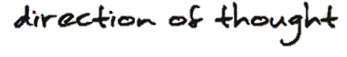 direction of thought